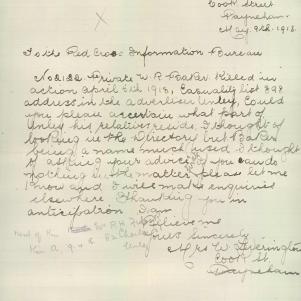 Cook Street
Payneham
May 9th 1918
To the Red Cross Information Bureau
Private W. R. Foster Killed in
action April 5th 1918, Casualty list 398
address in the advertiser Unley, Could
you please ascertain what part of
Unley his relatives reside. I thought of
looking up the Directory but Foster
being a name much used I thought
of asking your advice, if you can do
nothing in the matter please let me
know and I will make enquiries
elsewhere. Thanking you in
anticipation I am
Believe me
Yours Sincerely
Mrs W.
Cook St.
Payneham
Next of Kin
Unley